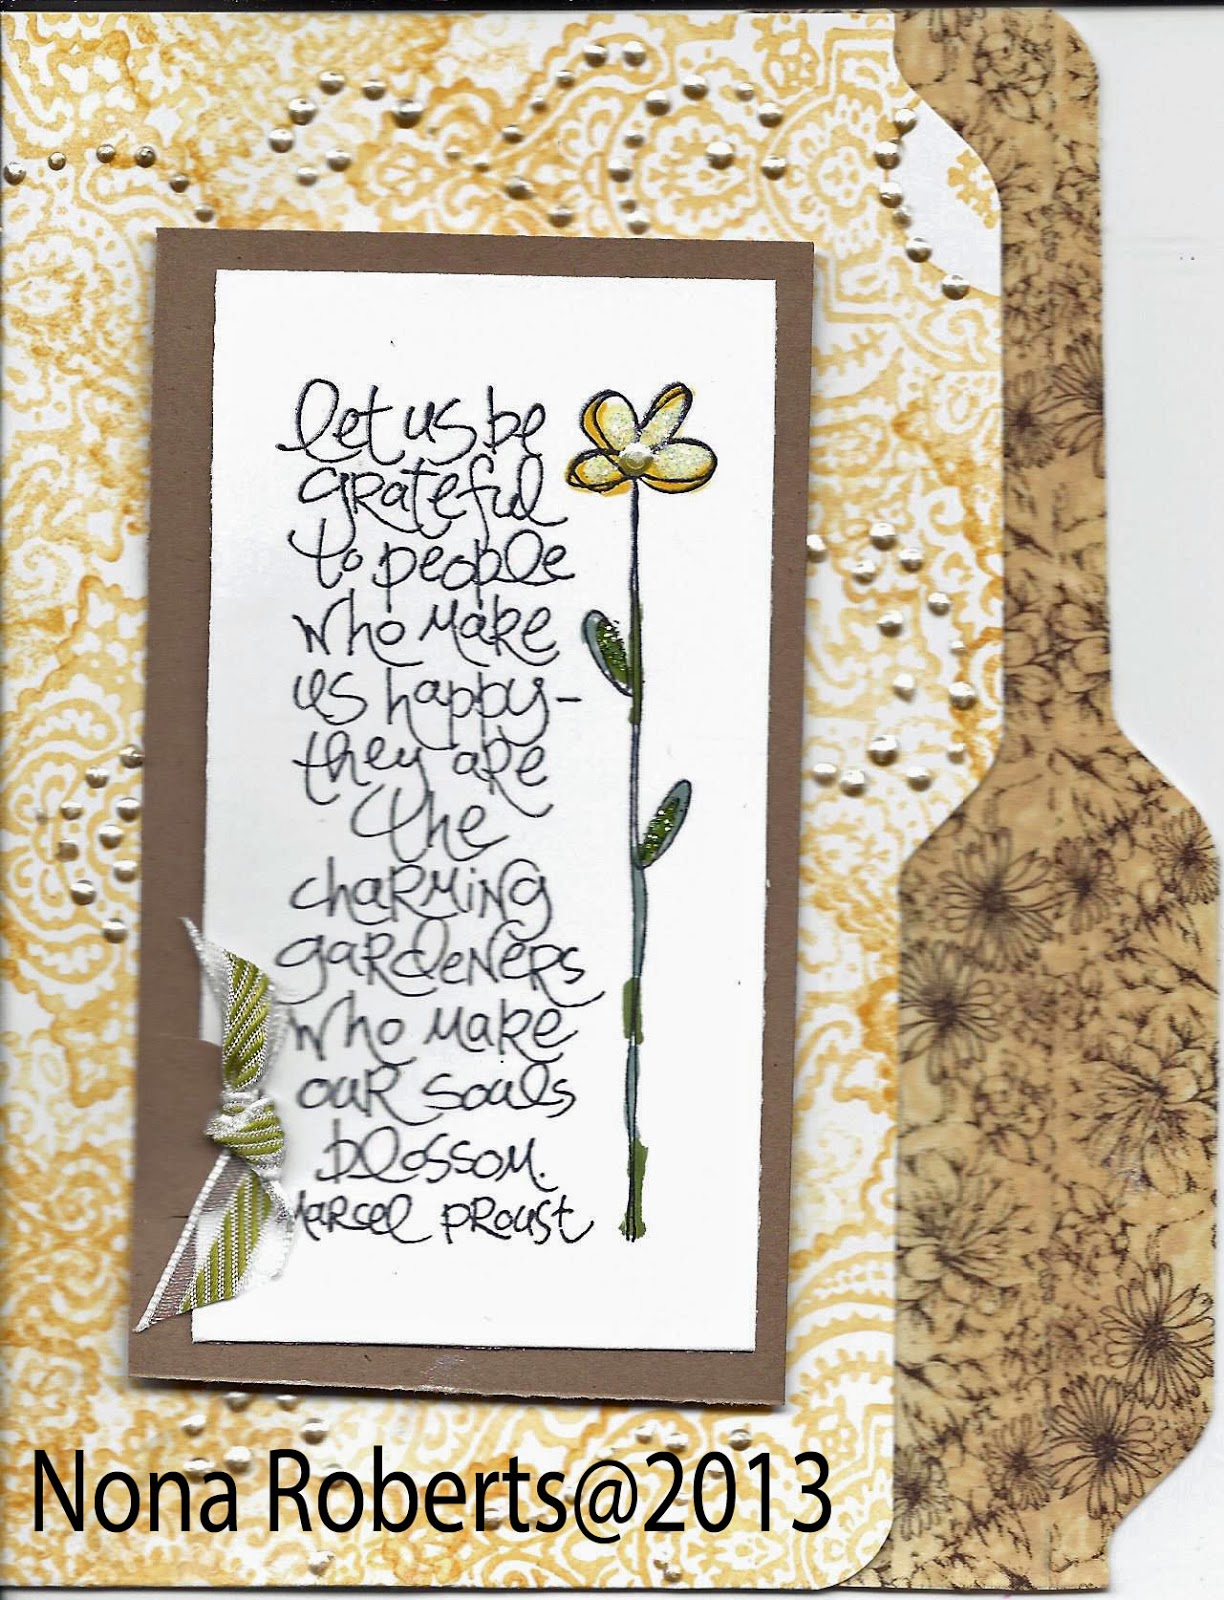 let us be
grateful
to people
who make
us happy-
they are
the
charming
gardeners
who make
our souls
blossom.
Marcel Proust
Nona Roberts@2013